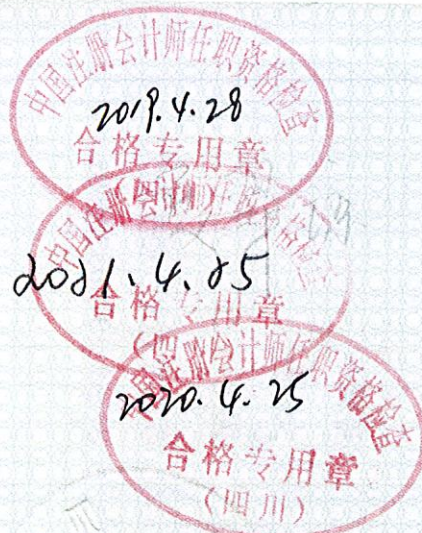 中国注册会计师任职资格检查
2019.4.28
合格专用章
(四川)
中国注册会计师任职资格检查
2021.4.25
合格专用章
(四
中国注册会计师任职资格检查
2020.4.25
合格专用章
(四川)